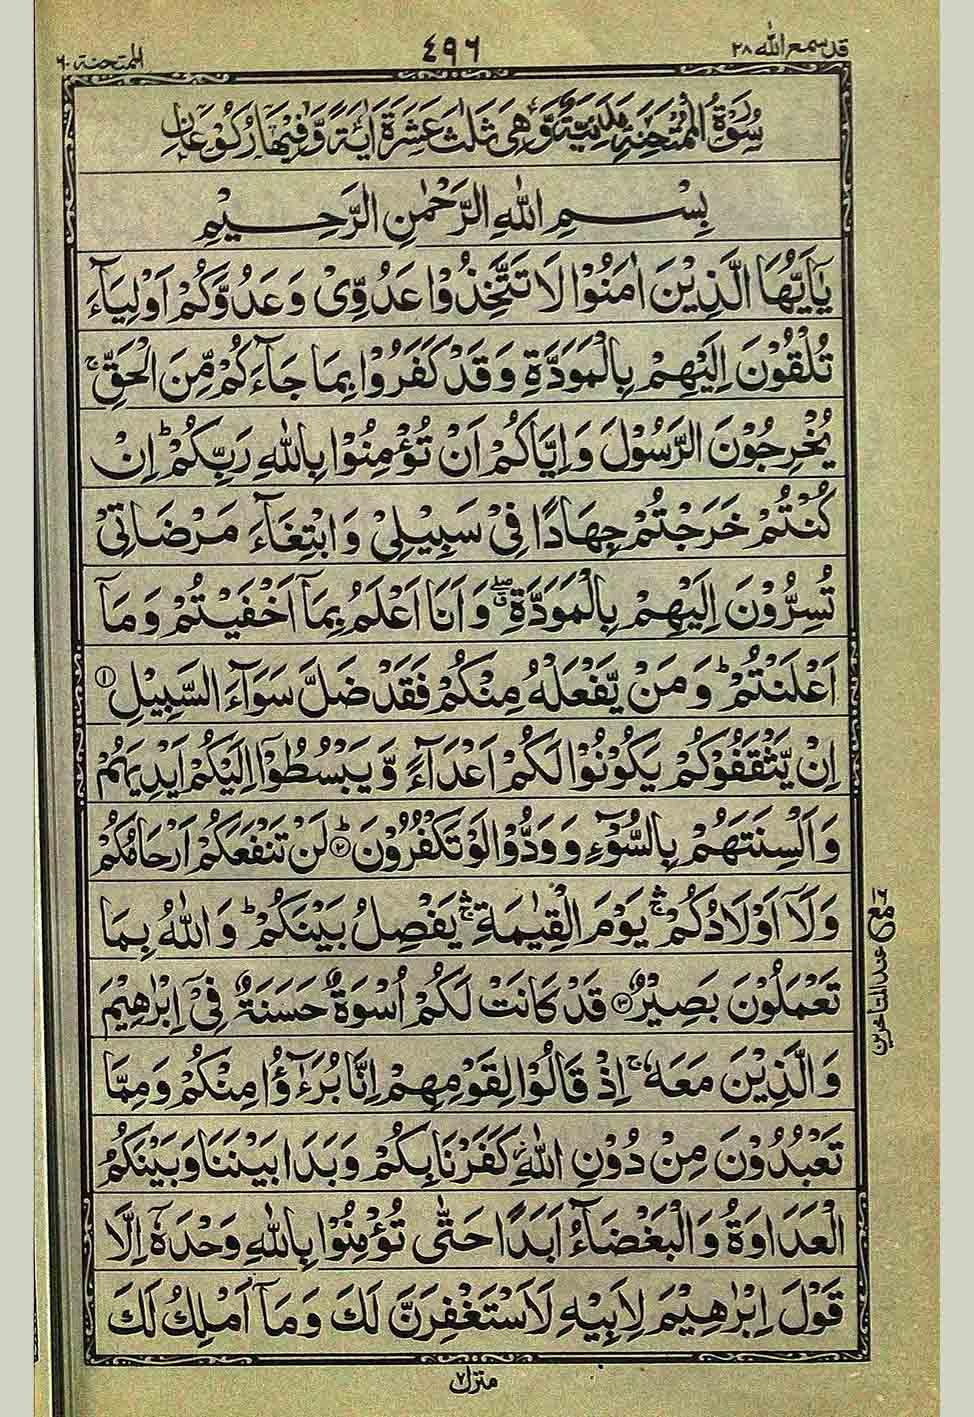 قد سمع الله ٢٨
٤٩٦
الممتحنة ٦٠
سُوْرَةُ الْمُمْتَحِنَةِ مَدَنِيَّةٌ وَّهِيَ ثَلٰثَ عَشْرَةَ اٰيَةً وَّفِيْهَا رُكُوْعَانِ
بِسْمِ اللّٰهِ الرَّحْمٰنِ الرَّحِيْمِ
يٰۤاَيُّهَا الَّذِيْنَ اٰمَنُوْا لَا تَتَّخِذُوْا عَدُوِّيْ وَعَدُوَّكُمْ اَوْلِيَآءَ
تُلْقُوْنَ اِلَيْهِمْ بِالْمَوَدَّةِ وَقَدْ كَفَرُوْا بِمَا جَآءَكُمْ مِّنَ الْحَقِّ ۚ
يُخْرِجُوْنَ الرَّسُوْلَ وَاِيَّاكُمْ اَنْ تُؤْمِنُوْا بِاللّٰهِ رَبِّكُمْ ؕ اِنْ
كُنْتُمْ خَرَجْتُمْ جِهَادًا فِيْ سَبِيْلِيْ وَابْتِغَآءَ مَرْضَاتِيْ
تُسِرُّوْنَ اِلَيْهِمْ بِالْمَوَدَّةِ ۖۗ وَاَنَا اَعْلَمُ بِمَاۤ اَخْفَيْتُمْ وَمَاۤ
اَعْلَنْتُمْ ؕ وَمَنْ يَّفْعَلْهُ مِنْكُمْ فَقَدْ ضَلَّ سَوَآءَ السَّبِيْلِ ۝١
اِنْ يَّثْقَفُوْكُمْ يَكُوْنُوْا لَكُمْ اَعْدَآءً وَّيَبْسُطُوْۤا اِلَيْكُمْ اَيْدِيَهُمْ
وَاَلْسِنَتَهُمْ بِالسُّوْٓءِ وَوَدُّوْا لَوْ تَكْفُرُوْنَ ؕ۝٢ لَنْ تَنْفَعَكُمْ اَرْحَامُكُمْ
وَلَاۤ اَوْلَادُكُمْ ۛۚ يَوْمَ الْقِيٰمَةِ ۛۚ يَفْصِلُ بَيْنَكُمْ ؕ وَاللّٰهُ بِمَا
تَعْمَلُوْنَ بَصِيْرٌ ۝٣ قَدْ كَانَتْ لَكُمْ اُسْوَةٌ حَسَنَةٌ فِيْۤ اِبْرٰهِيْمَ
وَالَّذِيْنَ مَعَهٗ ۚ اِذْ قَالُوْا لِقَوْمِهِمْ اِنَّا بُرَءٰٓؤُا مِنْكُمْ وَمِمَّا
تَعْبُدُوْنَ مِنْ دُوْنِ اللّٰهِ ؗ كَفَرْنَا بِكُمْ وَبَدَا بَيْنَنَا وَبَيْنَكُمُ
الْعَدَاوَةُ وَالْبَغْضَآءُ اَبَدًا حَتّٰى تُؤْمِنُوْا بِاللّٰهِ وَحْدَهٗۤ اِلَّا
قَوْلَ اِبْرٰهِيْمَ لِاَبِيْهِ لَاَسْتَغْفِرَنَّ لَكَ وَمَاۤ اَمْلِكُ لَكَ
مع
عند المتاخرين
منزل ٧